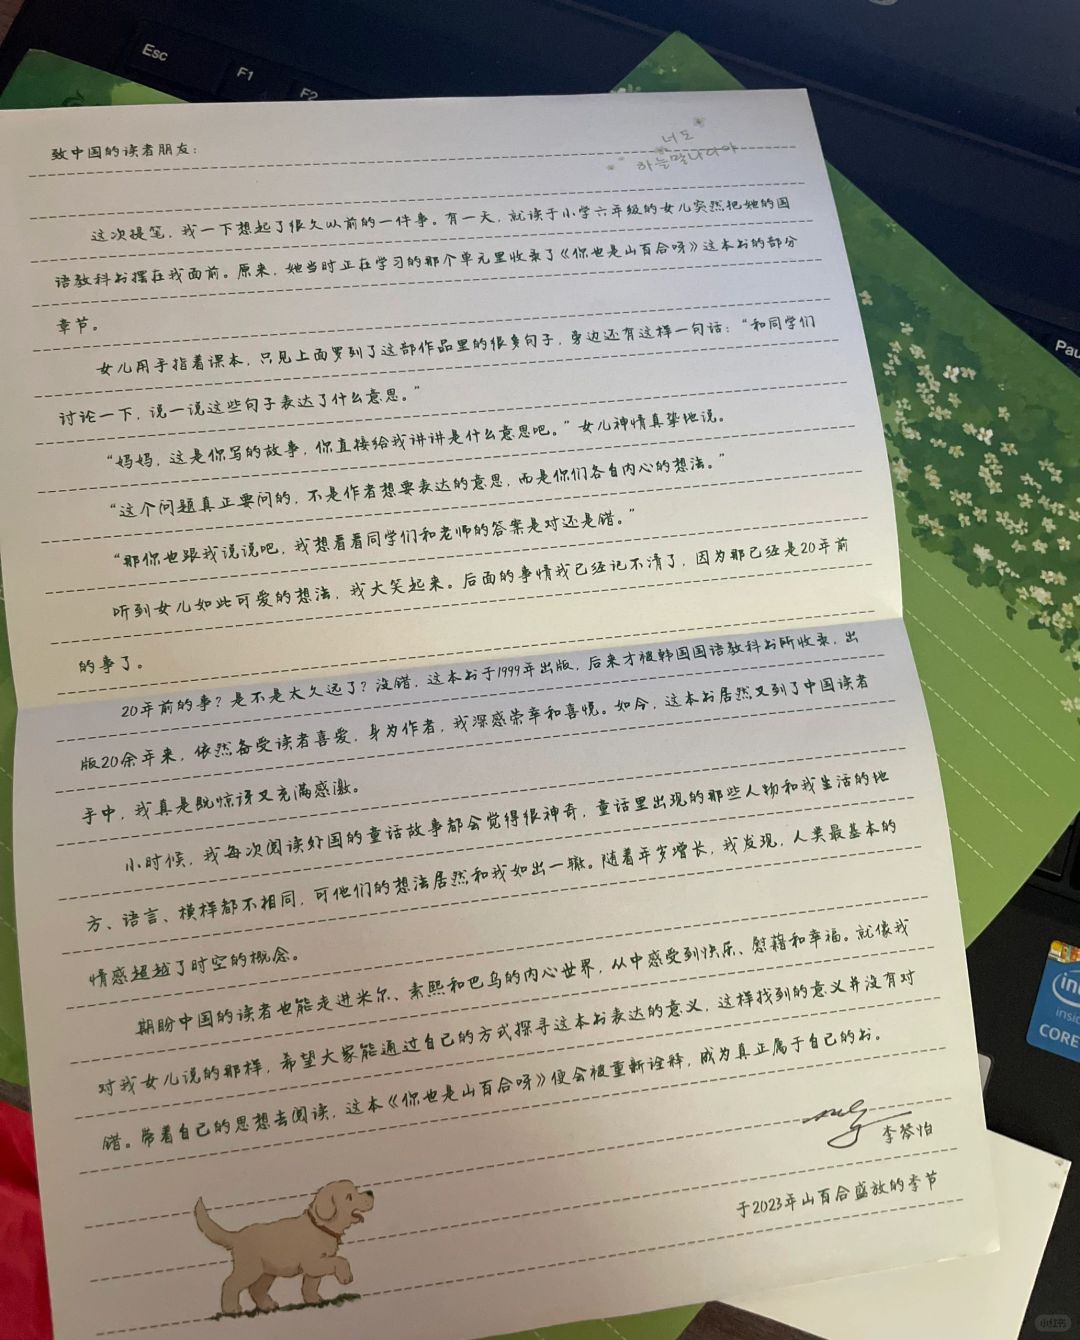 Esc
F1
F2
致中国的读者朋友：
너도
하늘말나리야
这次提笔，我一下想起了很久以前的一件事。有一天，就读于小学六年级的女儿突然把她的国
语教科书摆在我面前。原来，她当时正在学习的那个单元里收录了《你也是山百合呀》这本书的部分
章节。
女儿用手指着课本，只见上面罗列了这部作品里的很多句子，旁边还有这样一句话：“和同学们
讨论一下，说一说这些句子表达了什么意思。”
“妈妈，这是你写的故事，你直接给我讲讲是什么意思吧。”女儿神情真挚地说。
“这个问题真正要问的，不是作者想要表达的意思，而是你们各自内心的想法。”
“那你也跟我说说吧，我想看看同学们和老师的答案是对还是错。”
听到女儿如此可爱的想法，我大笑起来。后面的事情我已经记不清了，因为那已经是20年前
的事了。
20年前的事？是不是太久远了？没错，这本书于1999年出版，后来才被韩国国语教科书所收录，出
版20余年来，依然备受读者喜爱，身为作者，我深感荣幸和喜悦。如今，这本书居然又到了中国读者
手中，我真是既惊讶又充满感激。
小时候，我每次阅读外国的童话故事都会觉得很神奇，童话里出现的那些人物和我生活的地
方、语言、模样都不相同，可他们的想法居然和我如出一辙。随着年岁增长，我发现，人类最基本的
情感超越了时空的概念。
期盼中国的读者也能走进米尔、素熙和巴乌的内心世界，从中感受到快乐、慰藉和幸福。就像我
对我女儿说的那样，希望大家能通过自己的方式探寻这本书表达的意义，这样找到的意义并没有对
错。带着自己的思想去阅读，这本《你也是山百合呀》便会被重新诠释，成为真正属于自己的书。
李琴怡
于2023年山百合盛放的季节
Pau
inside
CORE
小红书